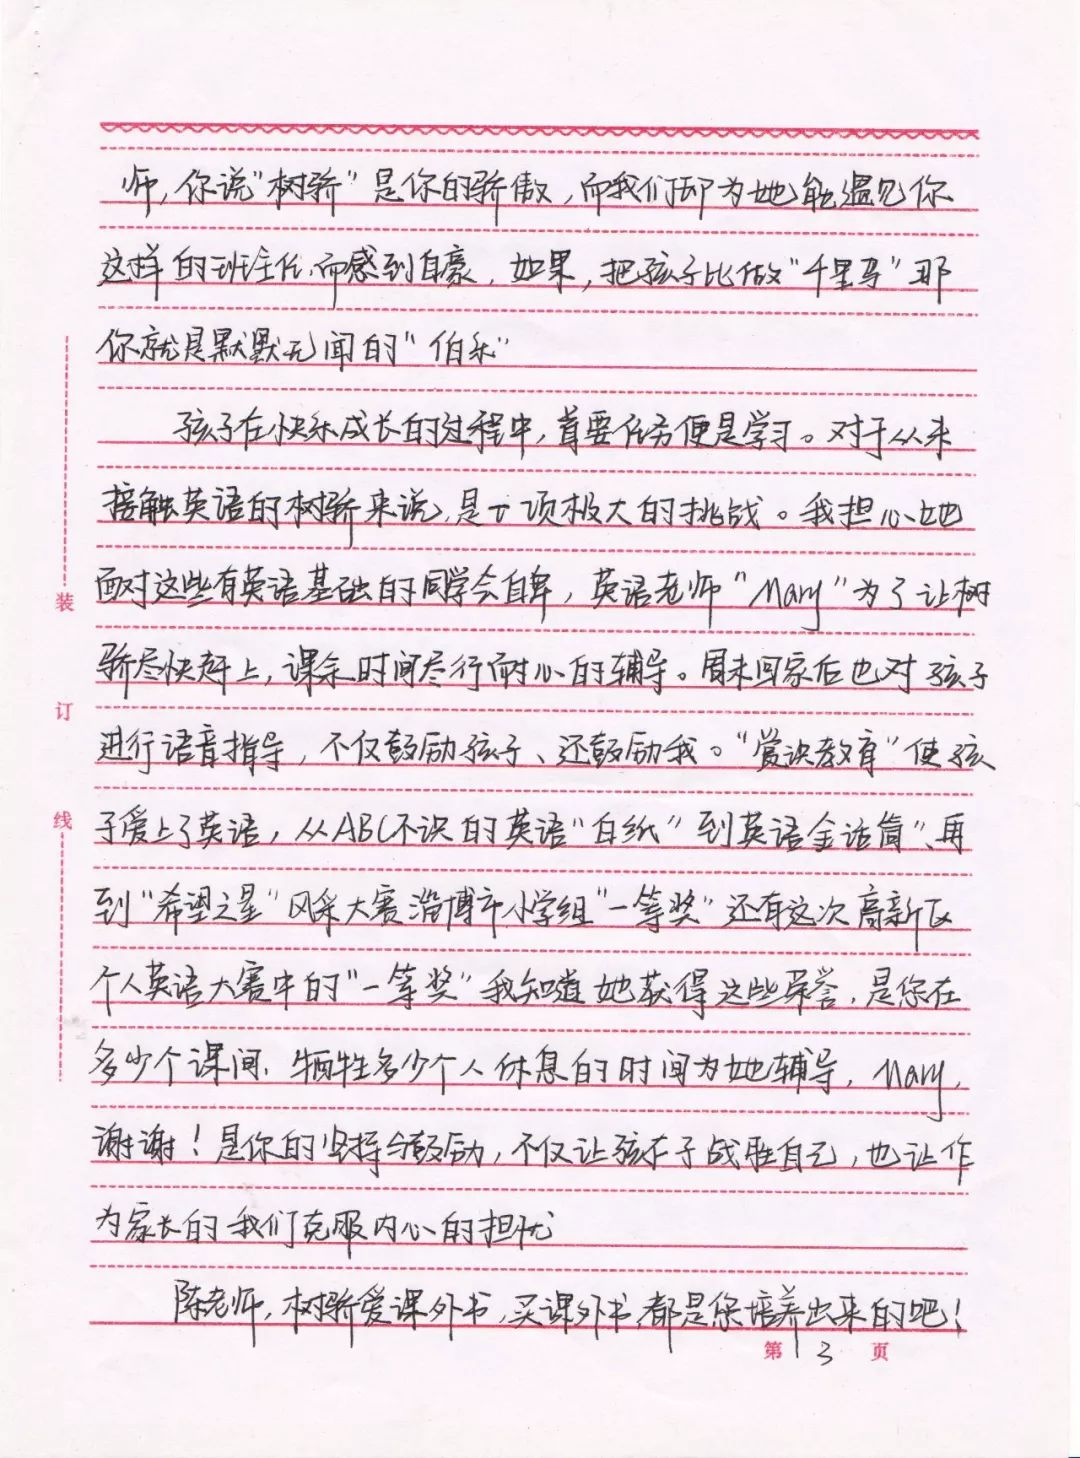 师，你说“树骄”是你的骄傲，而我们却为她能遇见你
这样的班主任而感到自豪．如果，把孩子比做“千里马”那
你就是默默无闻的“伯乐”
孩子在快乐成长的过程中，首要任务便是学习。对于从未
接触英语的树骄来说，是一项极大的挑战。我担心她
面对这些有英语基础的同学会自卑，英语老师“Mary”为了让树
骄尽快赶上，课余时间尽行耐心的辅导。周末回家后也对孩子
进行语音指导，不仅鼓励孩子、还鼓励我。“赏识教育”使孩
子爱上了英语，从ABC不识的英语“白纸”到英语金话筒”、再
到“希望之星”风采大赛淄博市小学组“一等奖”还有这次高新区
个人英语大赛中的“一等奖”我知道她获得这些荣誉，是您在
多少个课间，牺牲多少个人休息的时间为她辅导，Mary，
谢谢！是你的坚持与鼓励，不仅让孩在子战胜自己，也让作
为家长的我们克服内心的担忧
陈老师，树骄爱课外书，买课外书，都是您培养出来的吧！
装
订
线
第 3 页